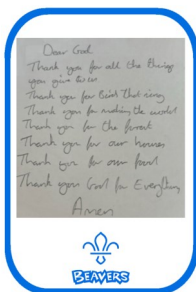 Dear God
Thank you for all the things
you give us
Thank you for birds that sing
Thank you for making the world
Thank you for the forest
Thank you for our houses
Thank you for our food
Thank you God for Everything
Amen
BEAVERS